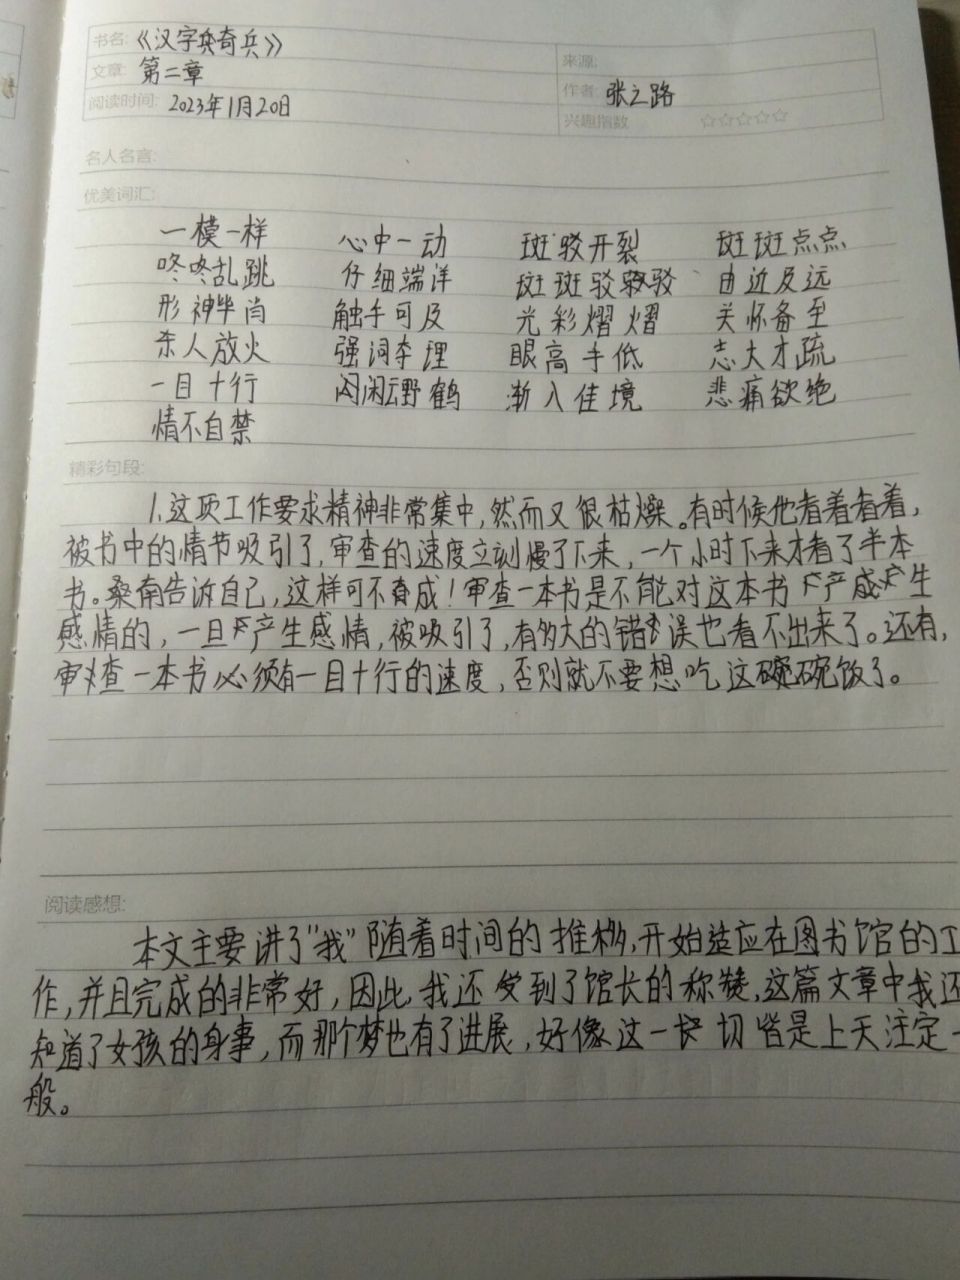 书名: 《汉字奇兵》
来源:
文章: 第二章
作者: 张之路
阅读时间: 2023年1月20日
兴趣指数 ☆☆☆☆☆
名人名言:
优美词汇:
一模一样 心中一动 斑驳开裂 斑斑点点
咚咚乱跳 仔细端详 斑斑驳驳 由近及远
形神毕肖 触手可及 光彩熠熠 关怀备至
杀人放火 强词夺理 眼高手低 志大才疏
一目十行 闲云野鹤 渐入佳境 悲痛欲绝
情不自禁
精彩句段:
1.这项工作要求精神非常集中,然而又很枯燥。有时候他看着看着,
被书中的情节吸引了,审查的速度立刻慢了下来,一个小时下来才看了半本
书。桑南告诉自己,这样可不成!审查一本书是不能对这本书产生
感情的,一旦产生感情,被吸引了,有多大的错误也看不出来了。还有,
审查一本书必须有一目十行的速度,否则就不要想吃这碗饭了。
阅读感想:
本文主要讲了"我"随着时间的推移,开始适应在图书馆的工
作,并且完成的非常好,因此,我还受到了馆长的称赞,这篇文章中我还
知道了女孩的身事,而那个梦也有了进展,好像这一切皆是上天注定一
般。